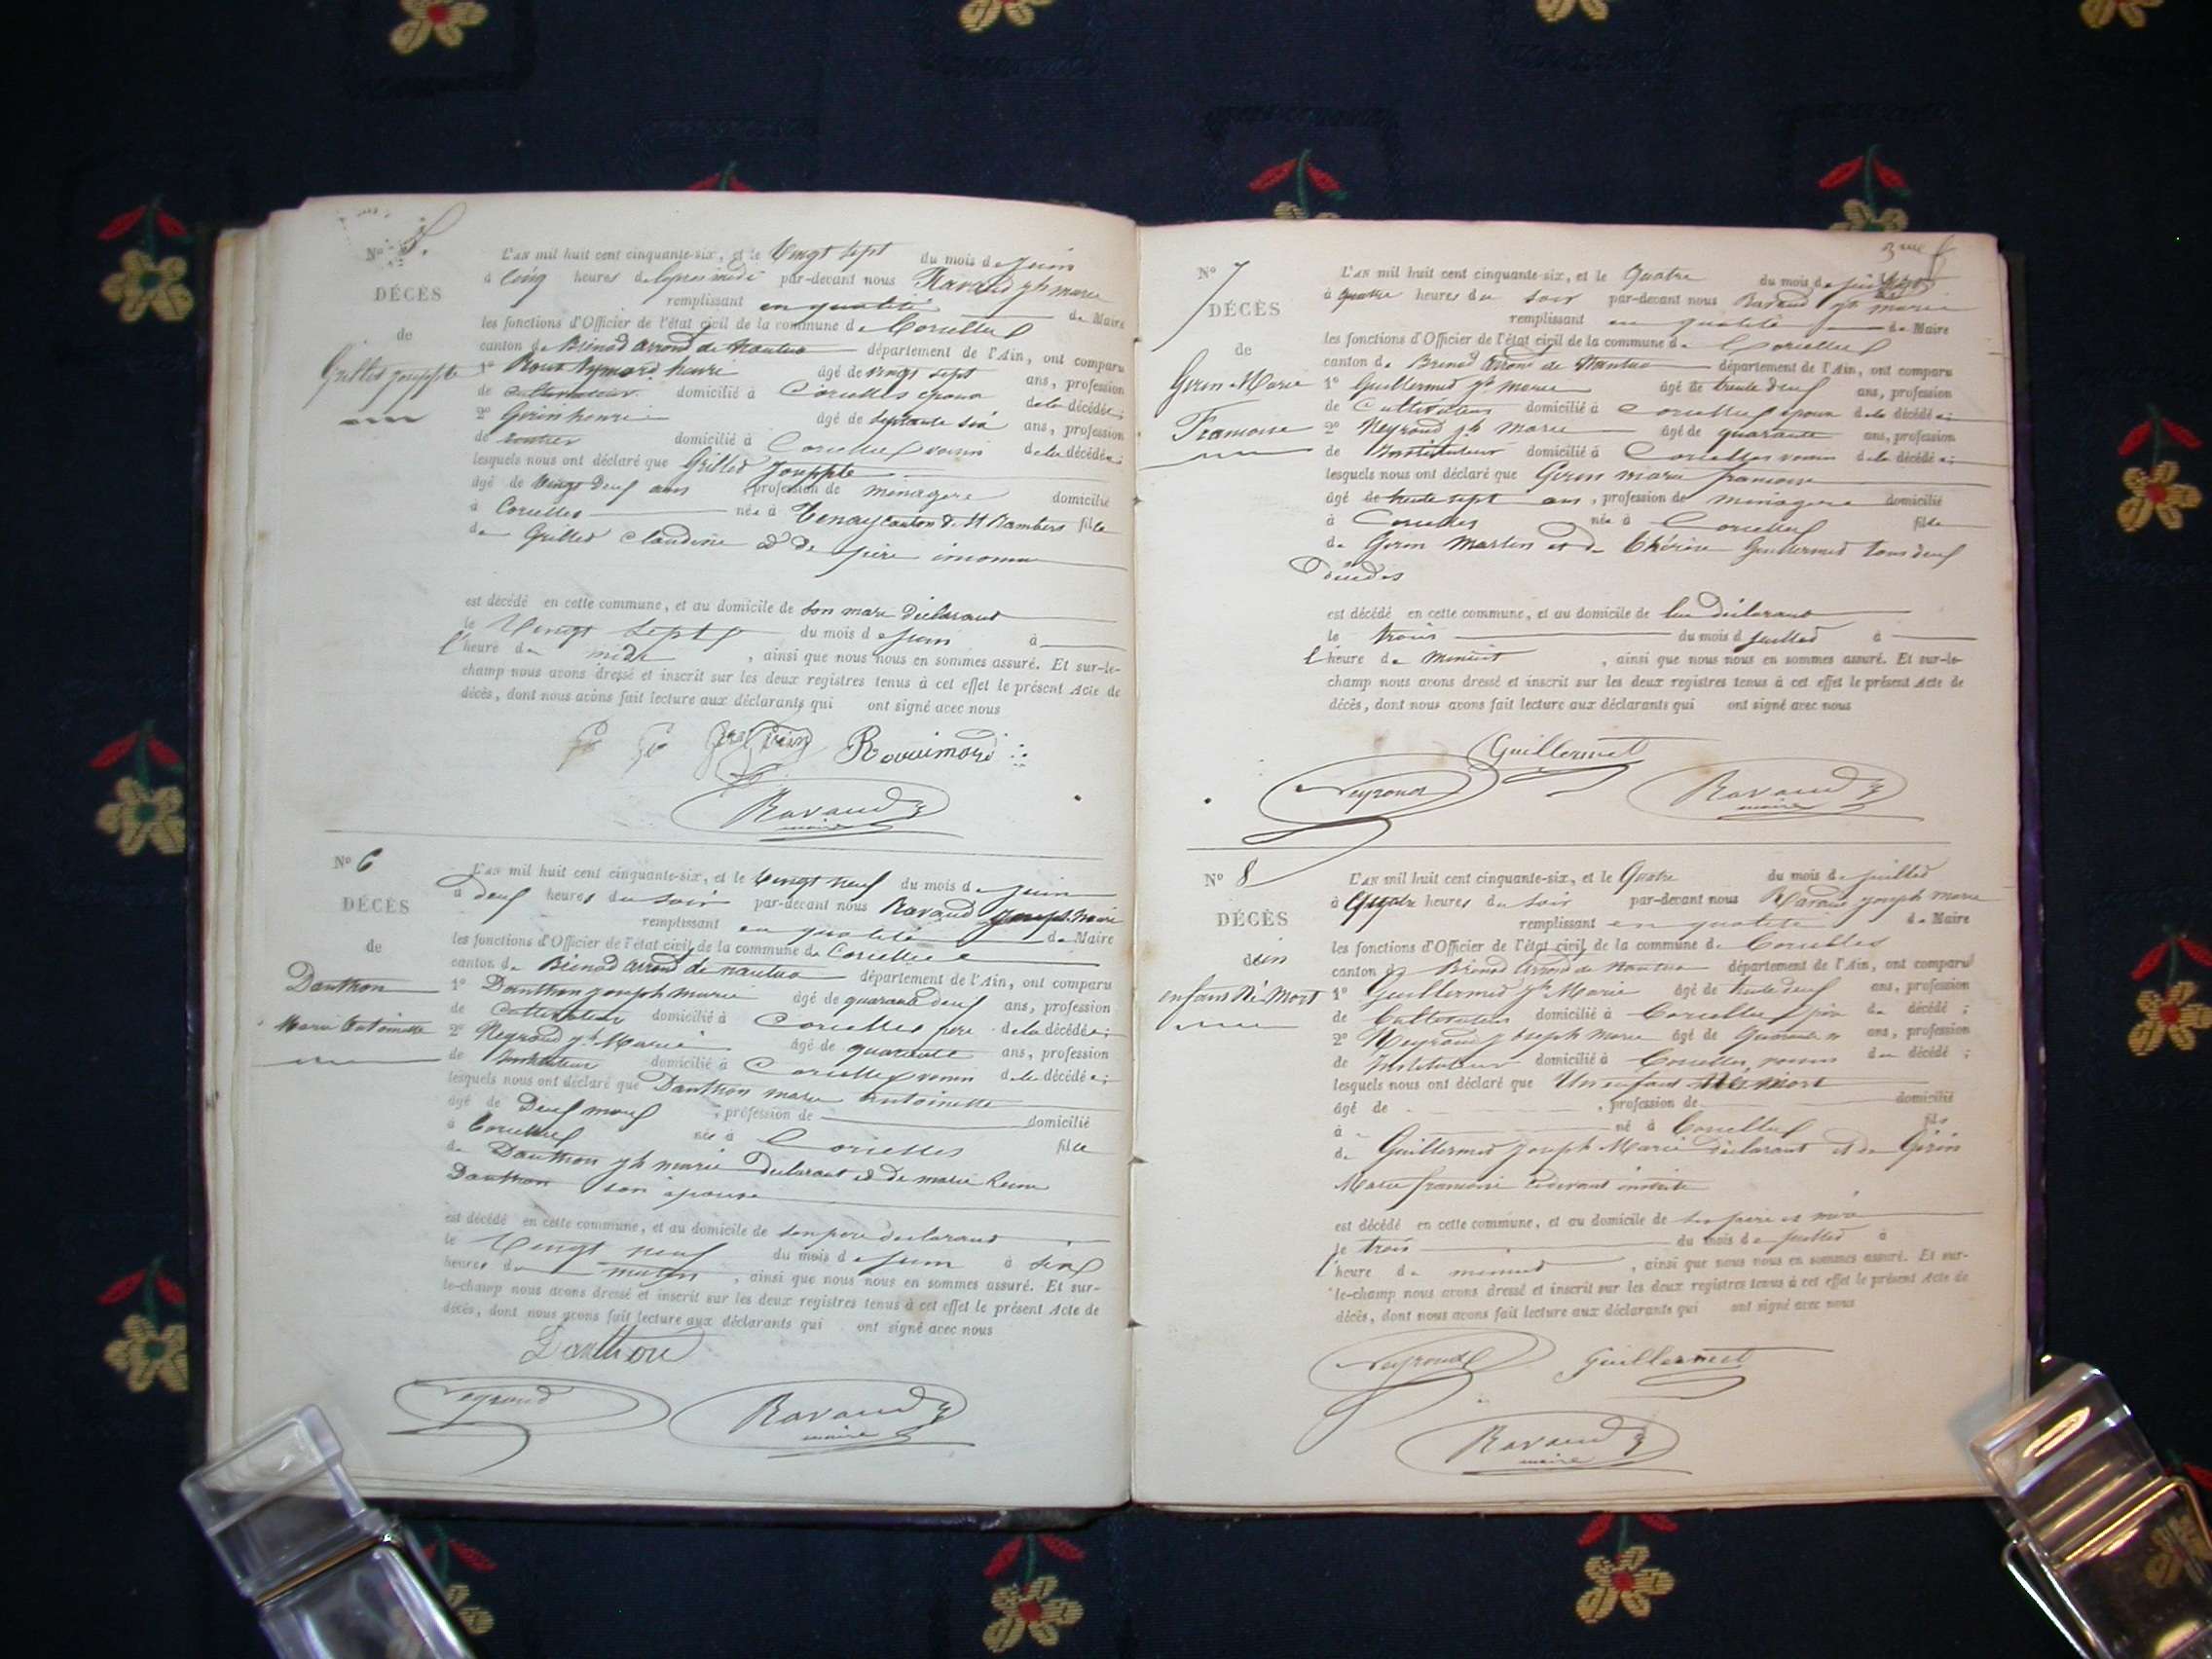 No 5.
DÉCÈS
de
Grilled Josephte
L'AN mil huit cent cinquante-six, et le Vingt sept du mois de Juin
à Cinq heures par-devant nous Ravaud jh marie
remplissant en qualité de Maire
les fonctions d'Officier de l'état civil de la commune de Corcelles
canton de Brénod arrond de Nantua département de l'Ain, ont comparu
1o âgé de vingt sept ans, profession
de cultivateur domicilié à Corcelles époux de la décédée;
2o Girin henri âgé de septante six ans, profession
de rentier domicilié à Corcelles voisin de la décédée;
lesquels nous ont déclaré que Grilled Josephte
âgé de vingt deux ans, profession de ménagère domicilié
à Corcelles née à Tenay canton de St Rambert fille
de Grilled Claudine et de père inconnu
est décédé en cette commune, et au domicile de son mari déclarant
le Vingt sept du mois de Juin à
l'heure de midi, ainsi que nous nous en sommes assuré. Et sur-le-
champ nous avons dressé et inscrit sur les deux registres tenus à cet effet le présent Acte de
décès, dont nous avons fait lecture aux déclarants qui ont signé avec nous
Ravaud
maire
No 6
DÉCÈS
de
Danthon
Marie Antoinette
L'AN mil huit cent cinquante-six, et le Vingt neuf du mois de Juin
à deux heures du soir par-devant nous Ravaud Joseph Marie
remplissant en qualité de Maire
les fonctions d'Officier de l'état civil de la commune de Corcelles
canton de Brénod arrond de Nantua département de l'Ain, ont comparu
1o Danthon Joseph Marie âgé de quarante deux ans, profession
de Cultivateur domicilié à Corcelles père de la décédée;
2o Neyroud jh Marie âgé de quarante ans, profession
de Instituteur domicilié à Corcelles voisin de la décédée;
lesquels nous ont déclaré que Danthon Marie Antoinette
âgé de Deux mois, profession de domicilié
à Corcelles née à Corcelles fille
de Danthon jh marie déclarant et de marie Reine
Danthon son épouse
est décédé en cette commune, et au domicile de son père déclarant
le Vingt neuf du mois de Juin à six
heures du matin, ainsi que nous nous en sommes assuré. Et sur-
le-champ nous avons dressé et inscrit sur les deux registres tenus à cet effet le présent Acte de
décès, dont nous avons fait lecture aux déclarants qui ont signé avec nous
Danthon
Neyroud
Ravaud
maire
3me f
No 7
DÉCÈS
de
Girin Marie
Francoise
L'AN mil huit cent cinquante-six, et le Quatre du mois de juillet
à quatre heures du soir par-devant nous Ravaud jh marie
remplissant en qualité de Maire
les fonctions d'Officier de l'état civil de la commune de Corcelles
canton de Brénod arrond de Nantua département de l'Ain, ont comparu
1o Guillermet jh marie âgé de trente deux ans, profession
de Cultivateur domicilié à Corcelles époux de la décédée;
2o Neyroud jh Marie âgé de quarante ans, profession
de Instituteur domicilié à Corcelles voisin de la décédée;
lesquels nous ont déclaré que Girin marie francoise
âgé de trente sept ans, profession de ménagère domicilié
à Corcelles née à Corcelles fille
de Girin Martin et de Thérèse Guillermet tous deux
décédés
est décédé en cette commune, et au domicile de lui déclarant
le trois du mois de juillet à
l'heure de Minuit, ainsi que nous nous en sommes assuré. Et sur-le-
champ nous avons dressé et inscrit sur les deux registres tenus à cet effet le présent Acte de
décès, dont nous avons fait lecture aux déclarants qui ont signé avec nous
Guillermet
Neyroud
Ravaud
maire
No 8
DÉCÈS
d'un
enfant Né Mort
L'AN mil huit cent cinquante-six, et le Quatre du mois de juillet
à Quatre heures du soir par-devant nous Ravaud joseph marie
remplissant en qualité de Maire
les fonctions d'Officier de l'état civil de la commune de Corcelles
canton de Brénod arrond de Nantua département de l'Ain, ont comparu
1o Guillermet jh Marie âgé de trente deux ans, profession
de Cultivateur domicilié à Corcelles père du décédé;
2o Neyroud Joseph Marie âgé de Quarante ans, profession
de Instituteur domicilié à Corcelles, voisin du décédé;
lesquels nous ont déclaré que Un enfant Né Mort
âgé de , profession de domicilié
à né à Corcelles fils
de Guillermet Joseph Marie déclarant et de Girin
Marie francoise
est décédé en cette commune, et au domicile de ses père et mère
le trois du mois de juillet à
l'heure de minuit, ainsi que nous nous en sommes assuré. Et sur-
le-champ nous avons dressé et inscrit sur les deux registres tenus à cet effet le présent Acte de
décès, dont nous avons fait lecture aux déclarants qui ont signé avec nous
Neyroud Guillermet
Ravaud
maire